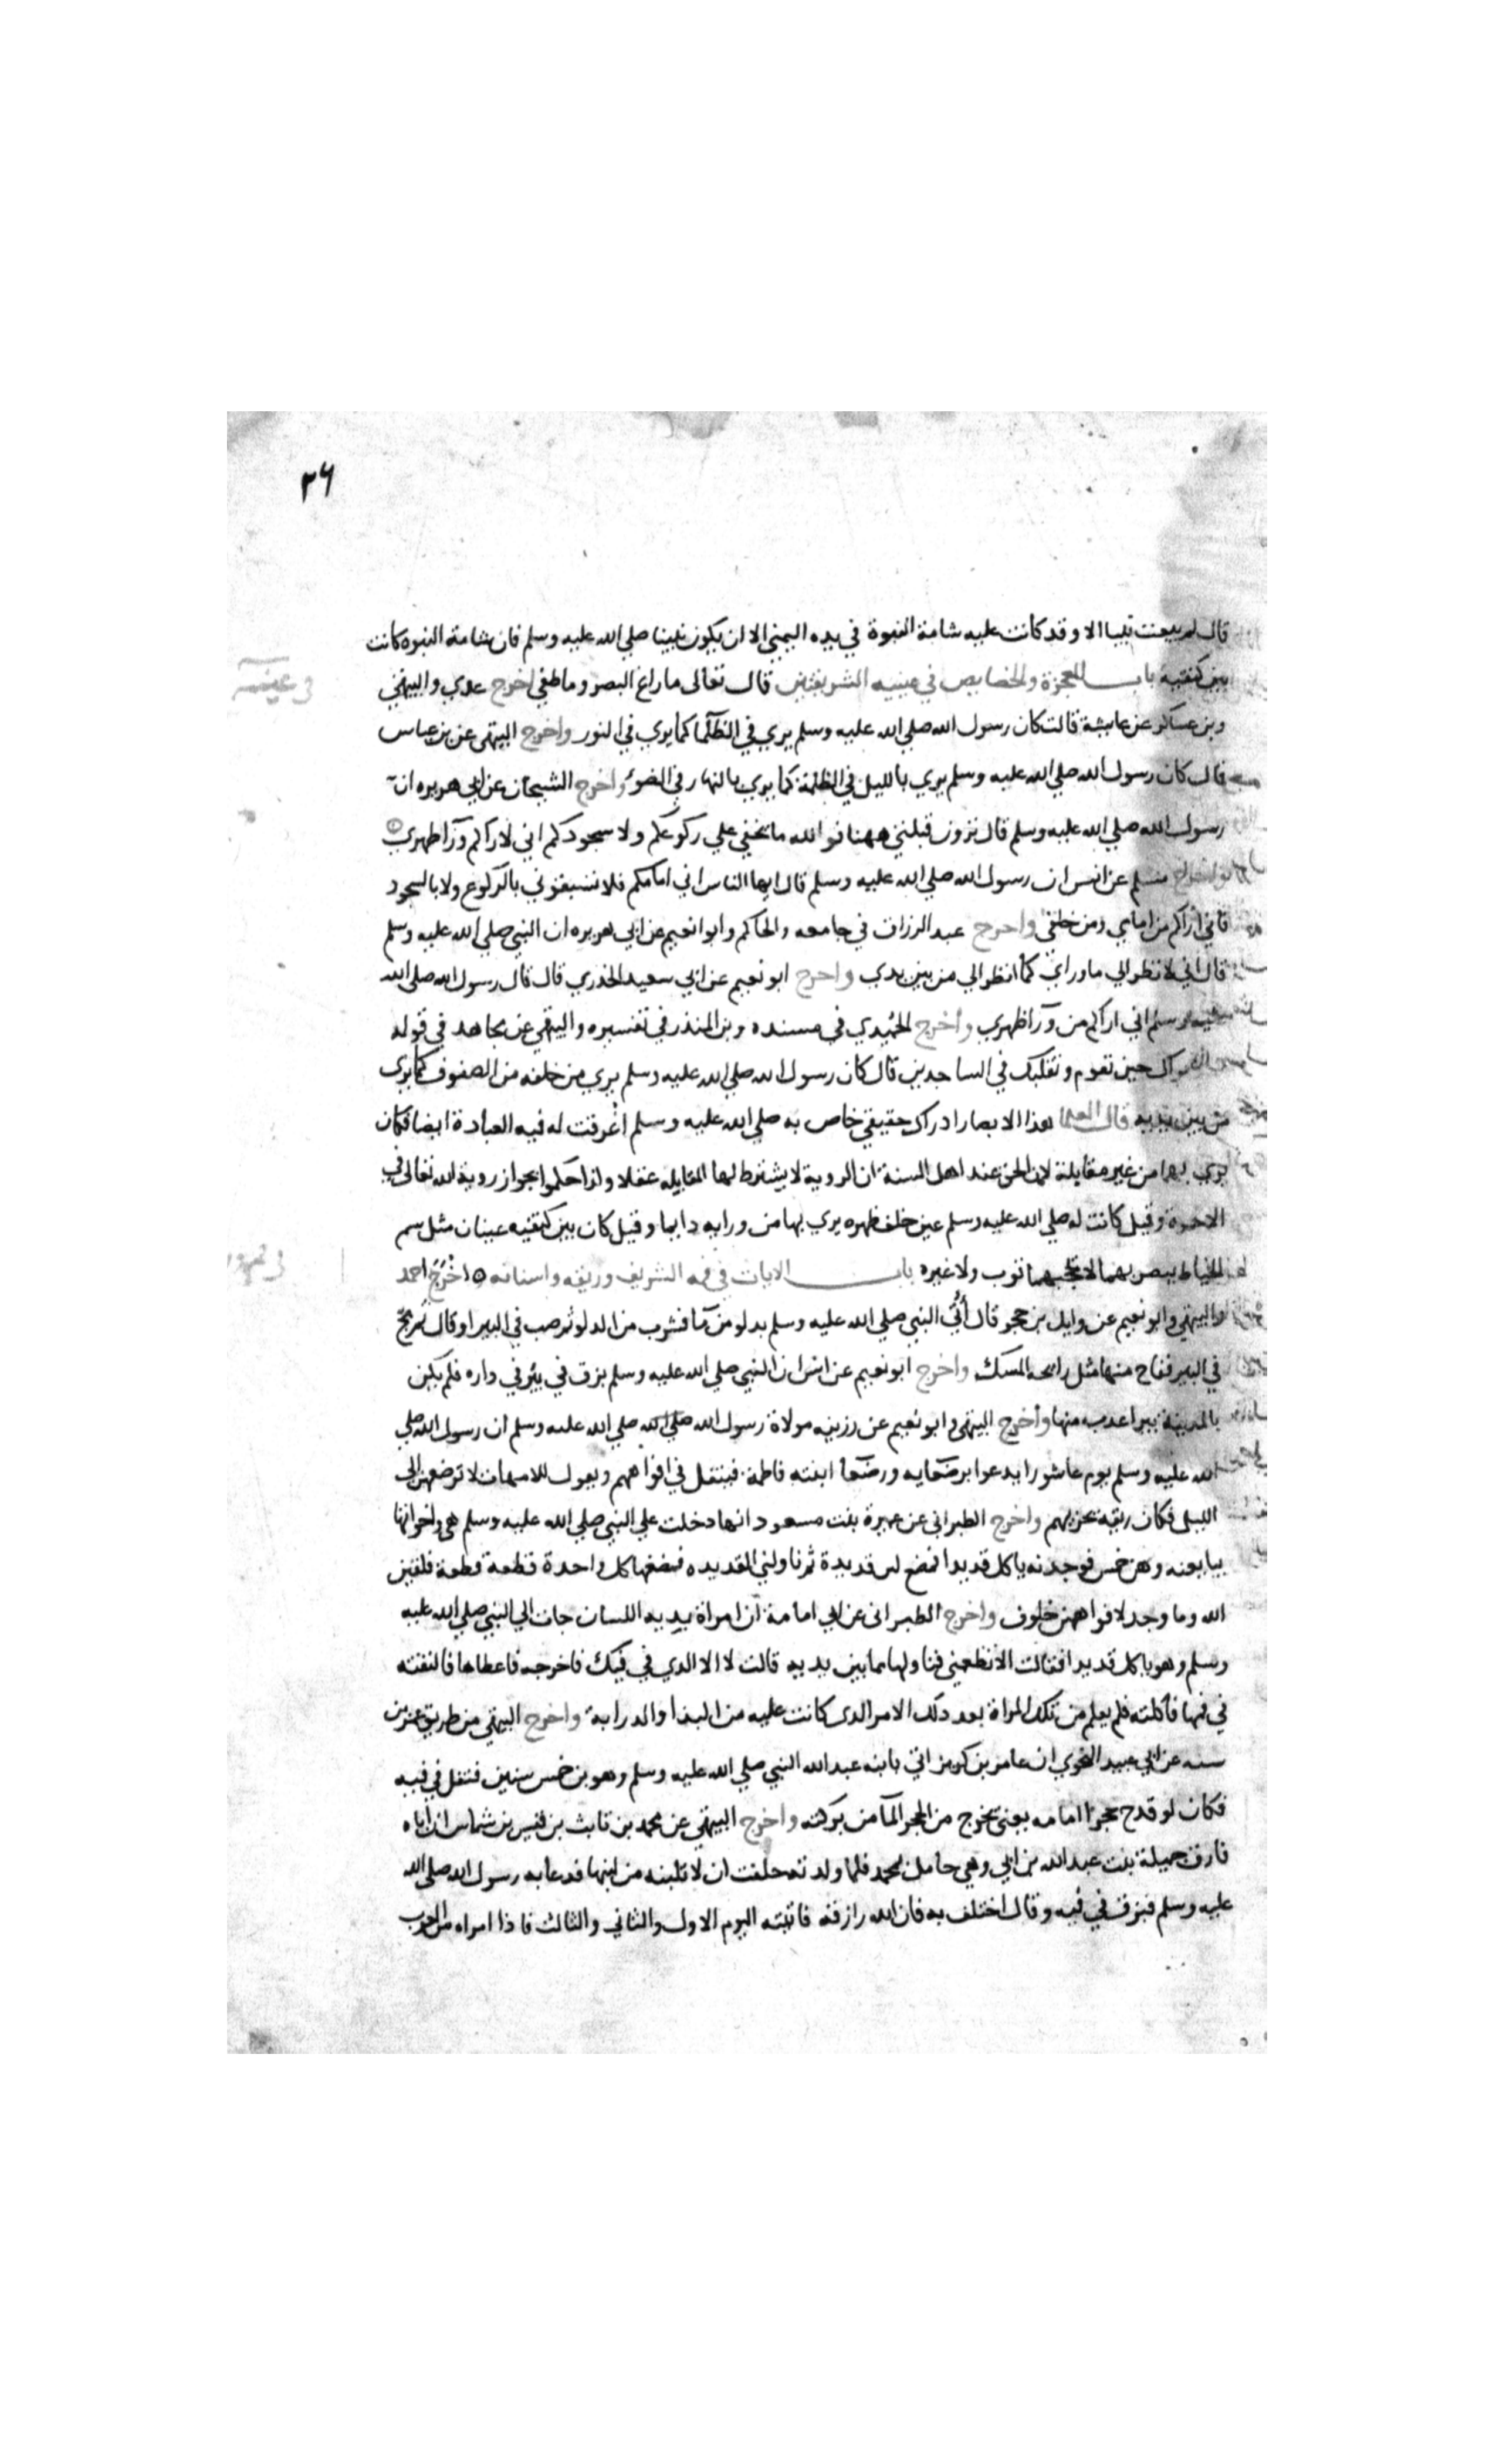 ٢٦
قال لم يبعث نبيا الا وقد كانت عليه شامة النبوة في يده اليمني الا ان يكون نبينا صلي الله عليه وسلم فان شامة النبوه كانت
بين كتفيه باب المعجزة والخصايص في عينيه الشريفتين قال تعالى ما زاغ البصر وما طغي اخرج عدي والبيهقي
في عينيه
وبن عساكر عن عايشة قالت كان رسول الله صلي الله عليه وسلم يري في الظلما كما يري في النور واخرج البيهقي عن بن عباس
قال كان رسول الله صلي الله عليه وسلم يري بالليل في الظلمة كما يري بالنهار في الضوء واخرج الشيخان عن ابي هريره ان
رسول الله صلي الله عليه وسلم قال ترون قبلتي ههنا فوالله ما يخفي علي ركوعكم ولا سجودكم اني لاراكم ورآ ظهري
واخرج مسلم عن انس ان رسول الله صلي الله عليه وسلم قال ايها الناس اني امامكم فلا تسبقوني بالركوع ولا بالسجود
فاني اراكم من امامي ومن خلفي واخرج عبد الرزاق في جامعه والحاكم وابو نعيم عن ابي هريره ان النبي صلي الله عليه وسلم
قال اني لانظر الي ما وراي كما انظر الي من بين يدي واخرج ابو نعيم عن ابي سعيد الخدري قال قال رسول الله صلي الله
عليه وسلم اني اراكم من ورآ ظهري واخرج الحميدي في مسنده وبن المنذر في تفسيره والبيهقي عن مجاهد في قوله
يراك حين تقوم وتقلبك في الساجدين قال كان رسول الله صلي الله عليه وسلم يري من خلفه من الصفوف كما يري
من بين يديه قال العلما هذا الابصار ادراك حقيقي خاص به صلي الله عليه وسلم اخرقت له فيه العادة ايضا فكان
يري بها من غير مقابلة لان الحق عند اهل السنة ان الروية لا يشترط لها المقابله عقلا ولذا حكموا بجواز روية الله تعالى في
الاخرة وقيل كانت له صلي الله عليه وسلم عين خلف ظهره يري بها من ورايه دايما وقيل كان بين كتفيه عينان مثل سم
الخياط يبصر بهما لا يحجبهما ثوب ولا غيره باب الايات في فمه الشريف وريقه واسنانه اخرج احمد
والبيهقي وابو نعيم عن وايل بن حجر قال أُتي النبي صلي الله عليه وسلم بدلو من مآ فشرب من الدلو ثم صب في البير او قال ثم مج
في البير ففاح منها مثل رايحه المسك واخرج ابو نعيم عن انس ان النبي صلي الله عليه وسلم بزق في بئر في داره فلم يكن
بالمدينة بير اعذب منها واخرج البيهقي وابو نعيم عن رزينه مولاة رسول الله صلي الله صلي الله عليه وسلم ان رسول الله صلي
الله عليه وسلم يوم عاشورا يدعوا برضعايه ورضعا ابنته فاطمة فيتفل في افواههم ويقول للامهات لا ترضعهن الي
الليل فكان ريقه يجزيهم واخرج الطبراني عن عميرة بنت مسعود انها دخلت علي النبي صلي الله عليه وسلم هي واخواتها
يبايعنه وهن خمس فوجدنه ياكل قديدا فمضغ لهن قديدة ثم ناولني القديده فمضغها كل واحدة قطعة قطعة فلقين
الله وما وجد لافواههن خلوف واخرج الطبراني عن ابي امامة ان امراة بذيه اللسان جات الي النبي صلي الله عليه
وسلم وهو ياكل قديدا فقالت الا تطعمني فناولها مما بين يديه قالت لا الا الذي في فيك فاخرجه فاعطاها فالقته
في فمها فاكلته فلم يعلم من تلك المراة بعد ذلك الامر الذي كانت عليه من البذا والدرابة واخرج البيهقي من طريق
عن ابي عبيد النحوي ان عامر بن كريز اتي بابنه عبد الله النبي صلي الله عليه وسلم وهو بن خمس سنين فتفل في فيه
فكان لو قدح حجرا امامه يعني يخرج من الحجر المآ من بركته واخرج البيهقي عن محمد بن ثابت بن قيس بن شماس ان اباه
فارق جميلة بنت عبد الله بن ابي وهي حامل بمحمد فلما ولدته حلفت ان لا تلبنه من لبنها فدعا به رسول الله صلي الله
عليه وسلم فبزق في فيه وقال اختلف به فان الله رازقه فاتيته اليوم الاول والثاني والثالث فاذا امراه من العرب